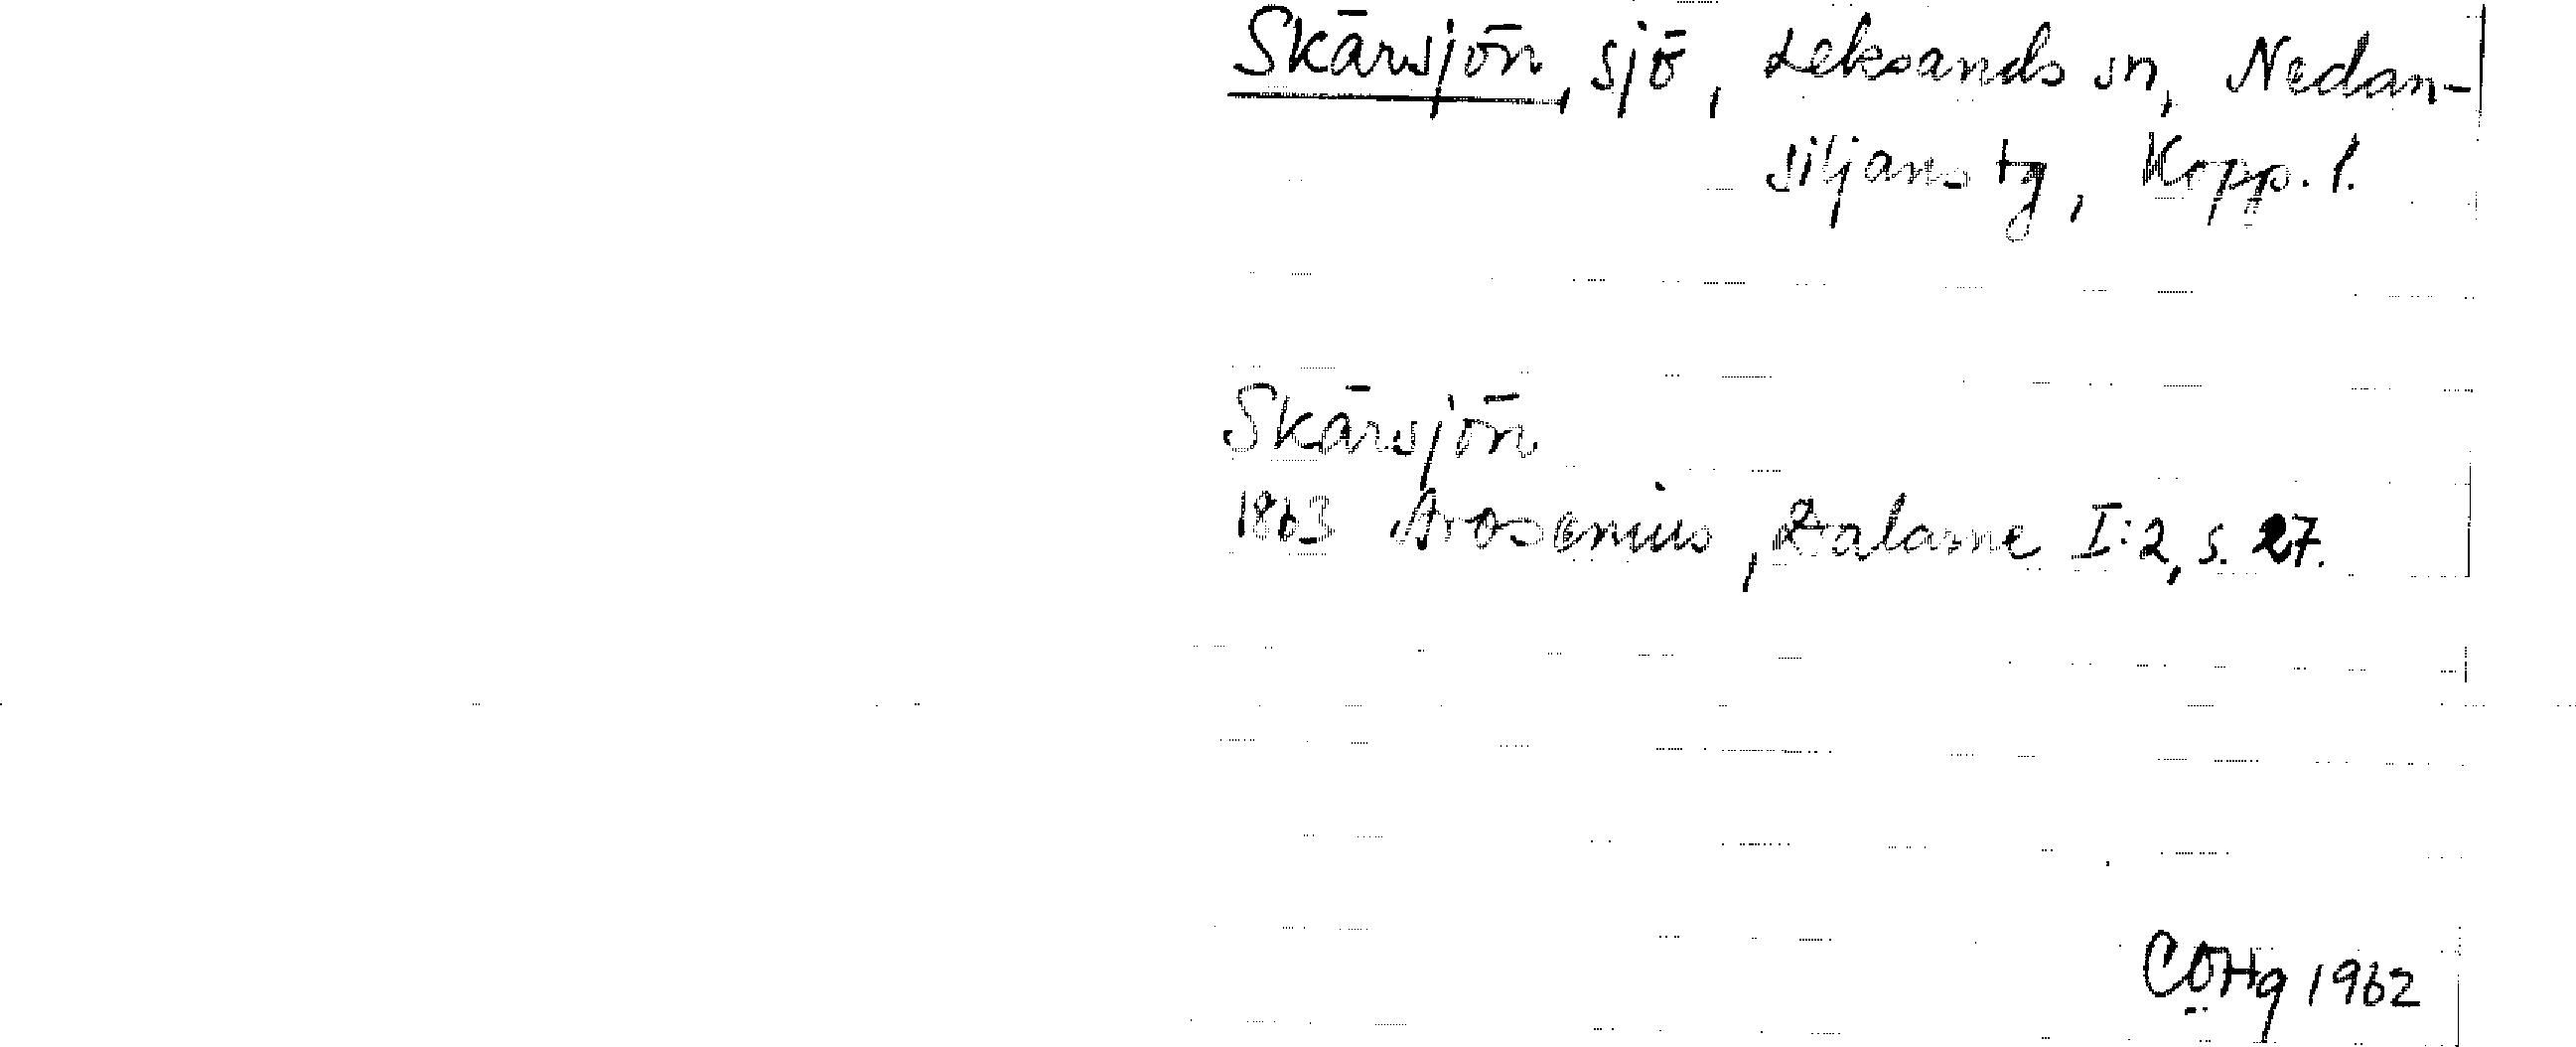 Skärsjön, sjö, Leksands sn, Nedan-
siljans tg, Kopp. l.
Skärsjön
1863 Arosenius, Dalarne I:2, s. 27.
COHg 1962